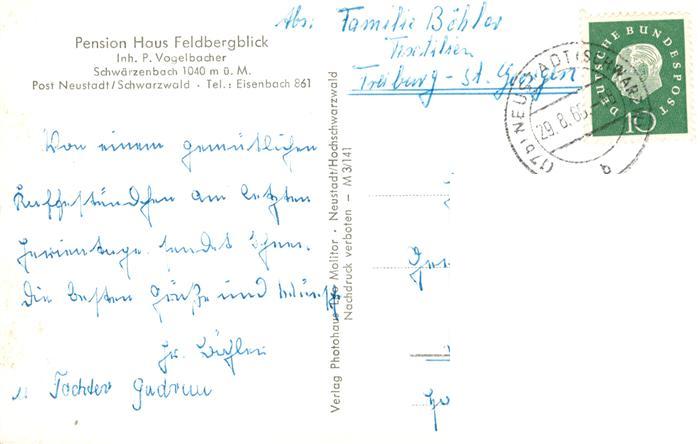 Pension Haus Feldbergblick
Inh. P. Vogelbacher
Schwärzenbach 1040 m ü. M.
Post Neustadt/Schwarzwald · Tel.: Eisenbach 861
Abs: Familie Böhler
Textilien
Freiburg - St. Georgen
DEUTSCHE BUNDESPOST
10
(17b) NEUSTADT (SCHWARZW)
29.8.60
a
Von einem gemütlichen
Kaffeestündchen am letzten
Ferientage sendet Ihnen
die besten Grüße und Wünsche
Fr. Böhler
u. Tochter Gudrun
Verlag Photohaus Leo Molitor · Neustadt/Hochschwarzwald
Nachdruck verboten — M 3/141